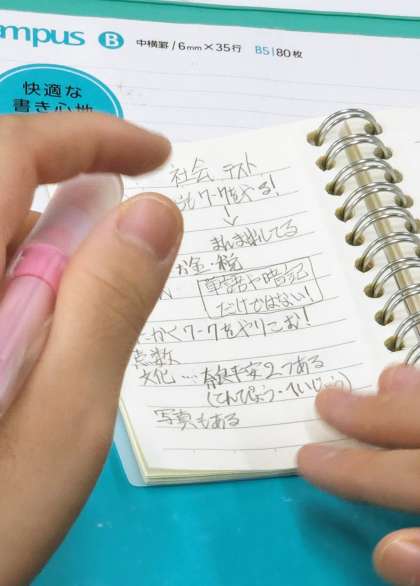 ampus B 中横罫/6mm×35行 B5|80枚
快適な
書き心地
社会 テスト
ワークをやる!
↓
まんま出してる
お金・税
単語や暗記
だけではない!
にかくワークをやりこむ!
点数
文化 … 奈良平安2つある
(てんぴょう・へいじょう)
写真もある